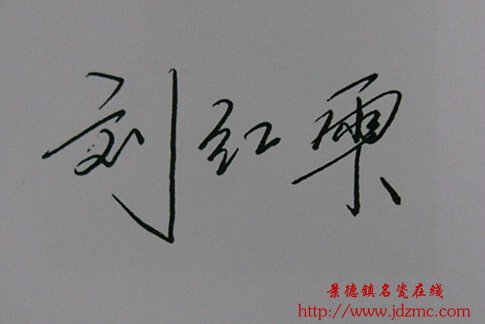 刘红霞
景德鎮名瓷在綫
http://www.jdzmc.com